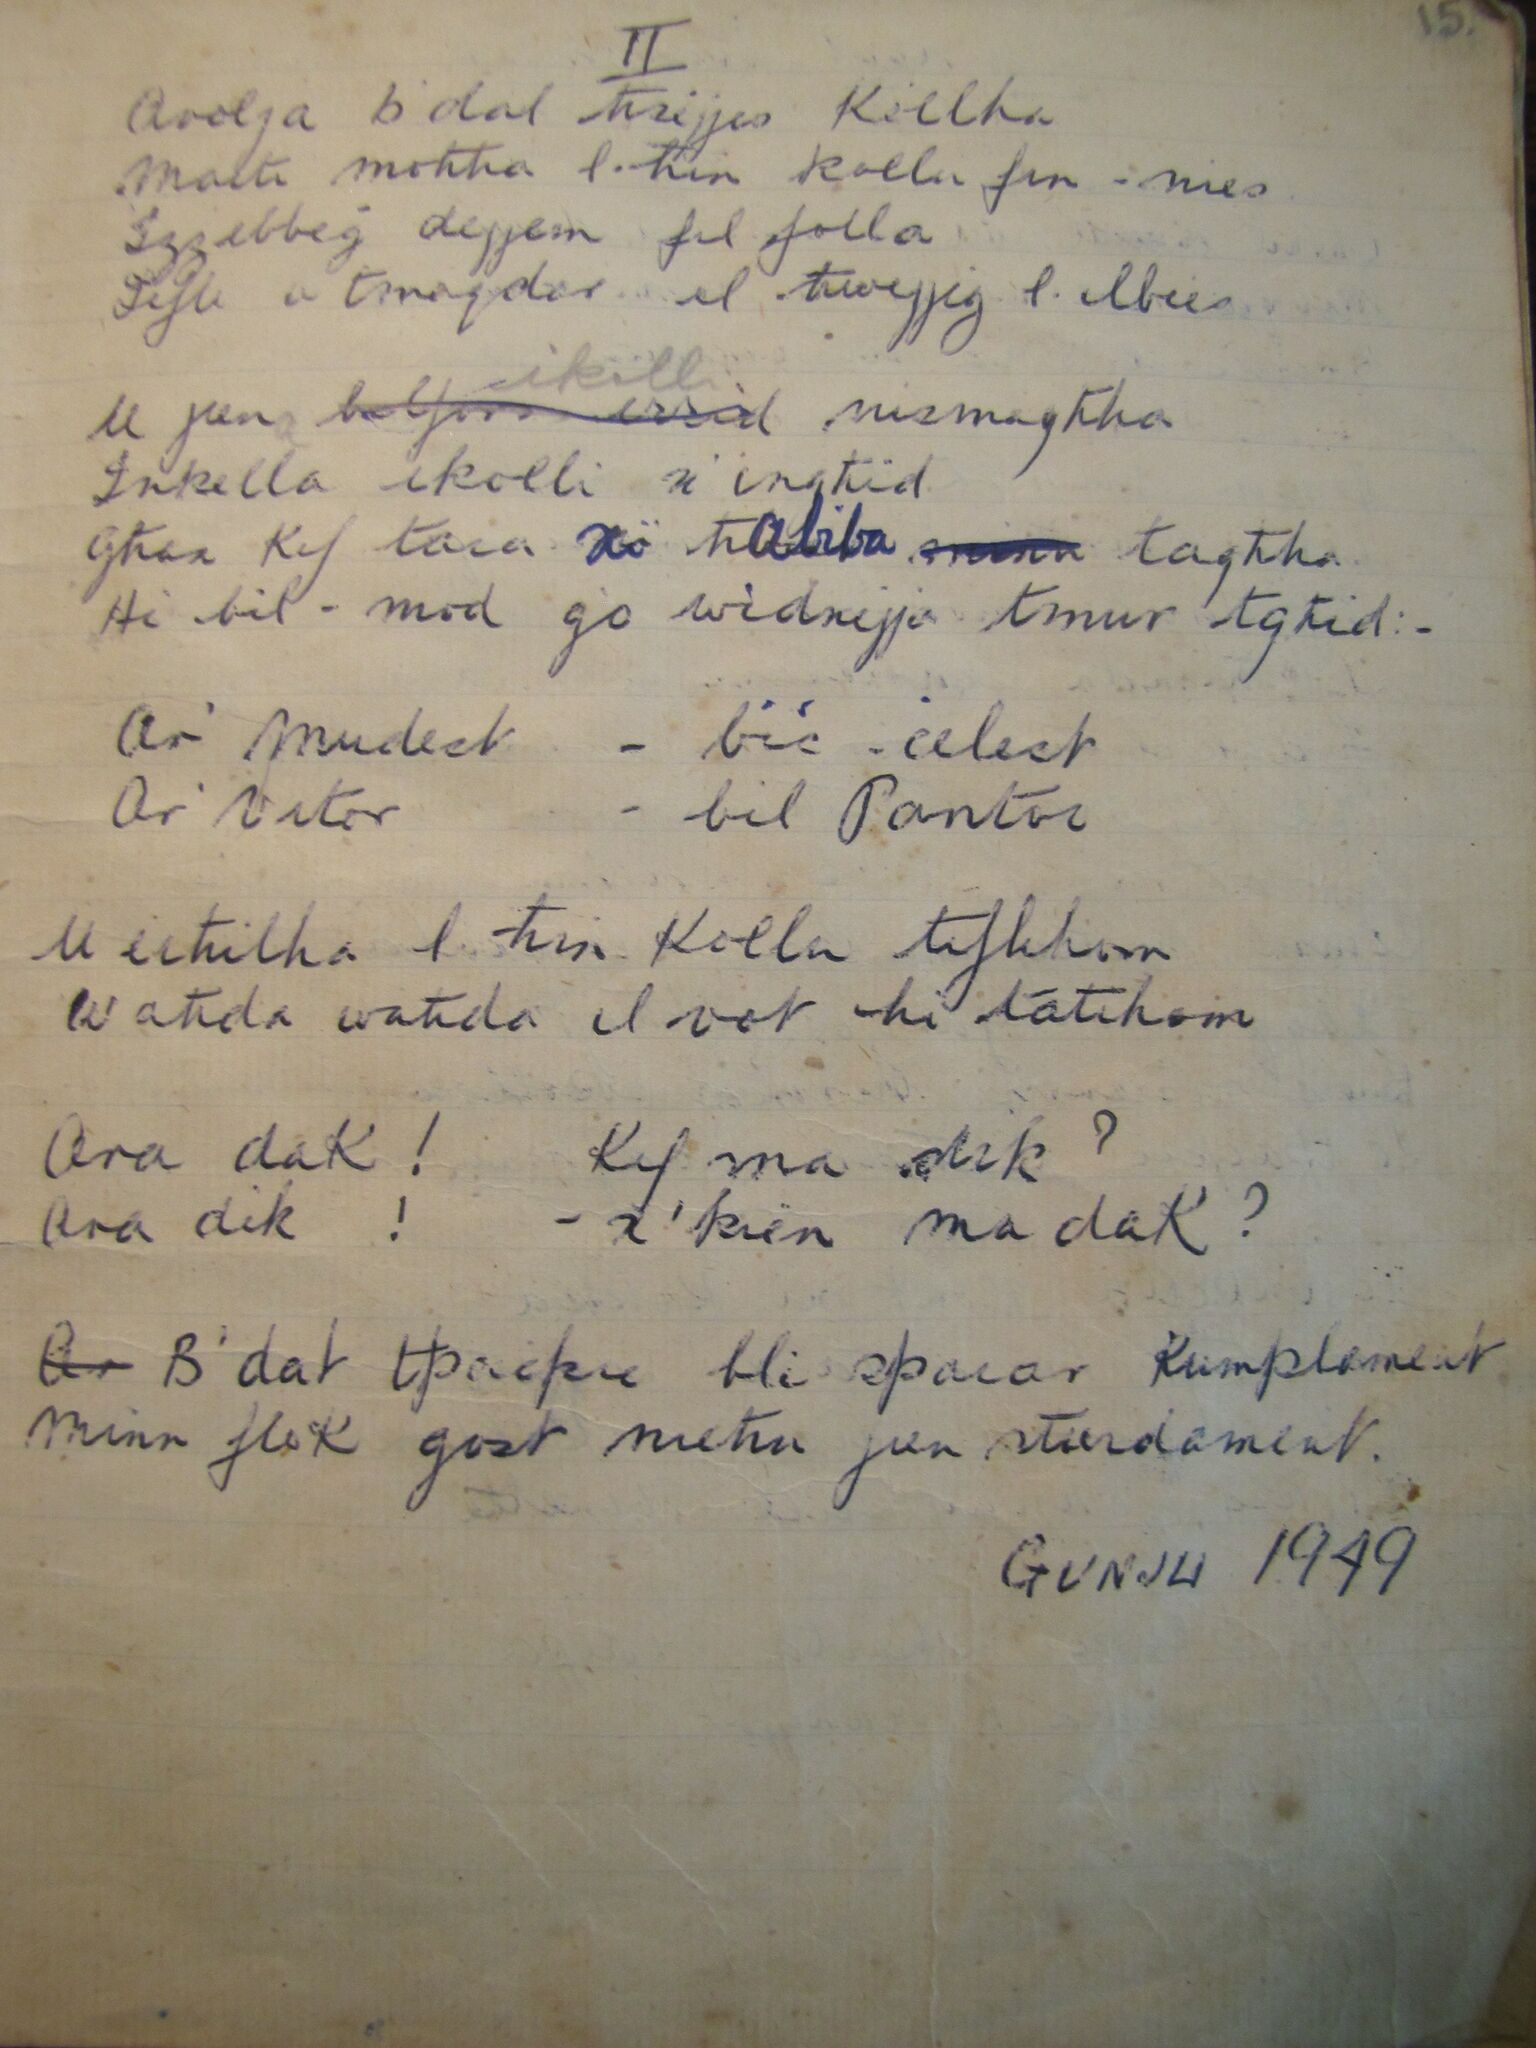 15.
II
Arolga b'dal tħejjes Kollha
Moħħha l-ħin kollu fin-nies
Iżżebbeġ dejjem fil folla
Tifli u tmaqdar il ħwejjiġ l-ilbies
U jien ikolli nismagħha
Inkella ikolli x'ingħid
Għax Kif tara xi ħabiba tagħha
Hi bil-mod ġo widnejja tmur tgħid:-
Ar' Mudest - bić-ċelest
Ar' Vitor - bil Pantoċ
U isħilha l-ħin Kollu tiflihom
Waħda waħda il vot hi tatihom
Ara dak! Kif ma dik?
Ara dik! - x'kien ma dak?
B'dat tpaċpiċ bli spaċar Kumplament
Minn flok gost nieħu jien sturdament.
GUNJU 1949